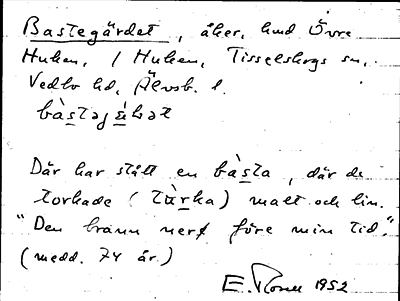 Bastegärdet, åker, hmd Övre
Huken, / Huken, Tisselskogs sn,
Vedbo hd, Älvsb. l.
Där har stått en bàsta, där de
torkade (tàrka) malt och lin.
"Den brann ner före min tid."
(medd. 74 år.)
E. 1952